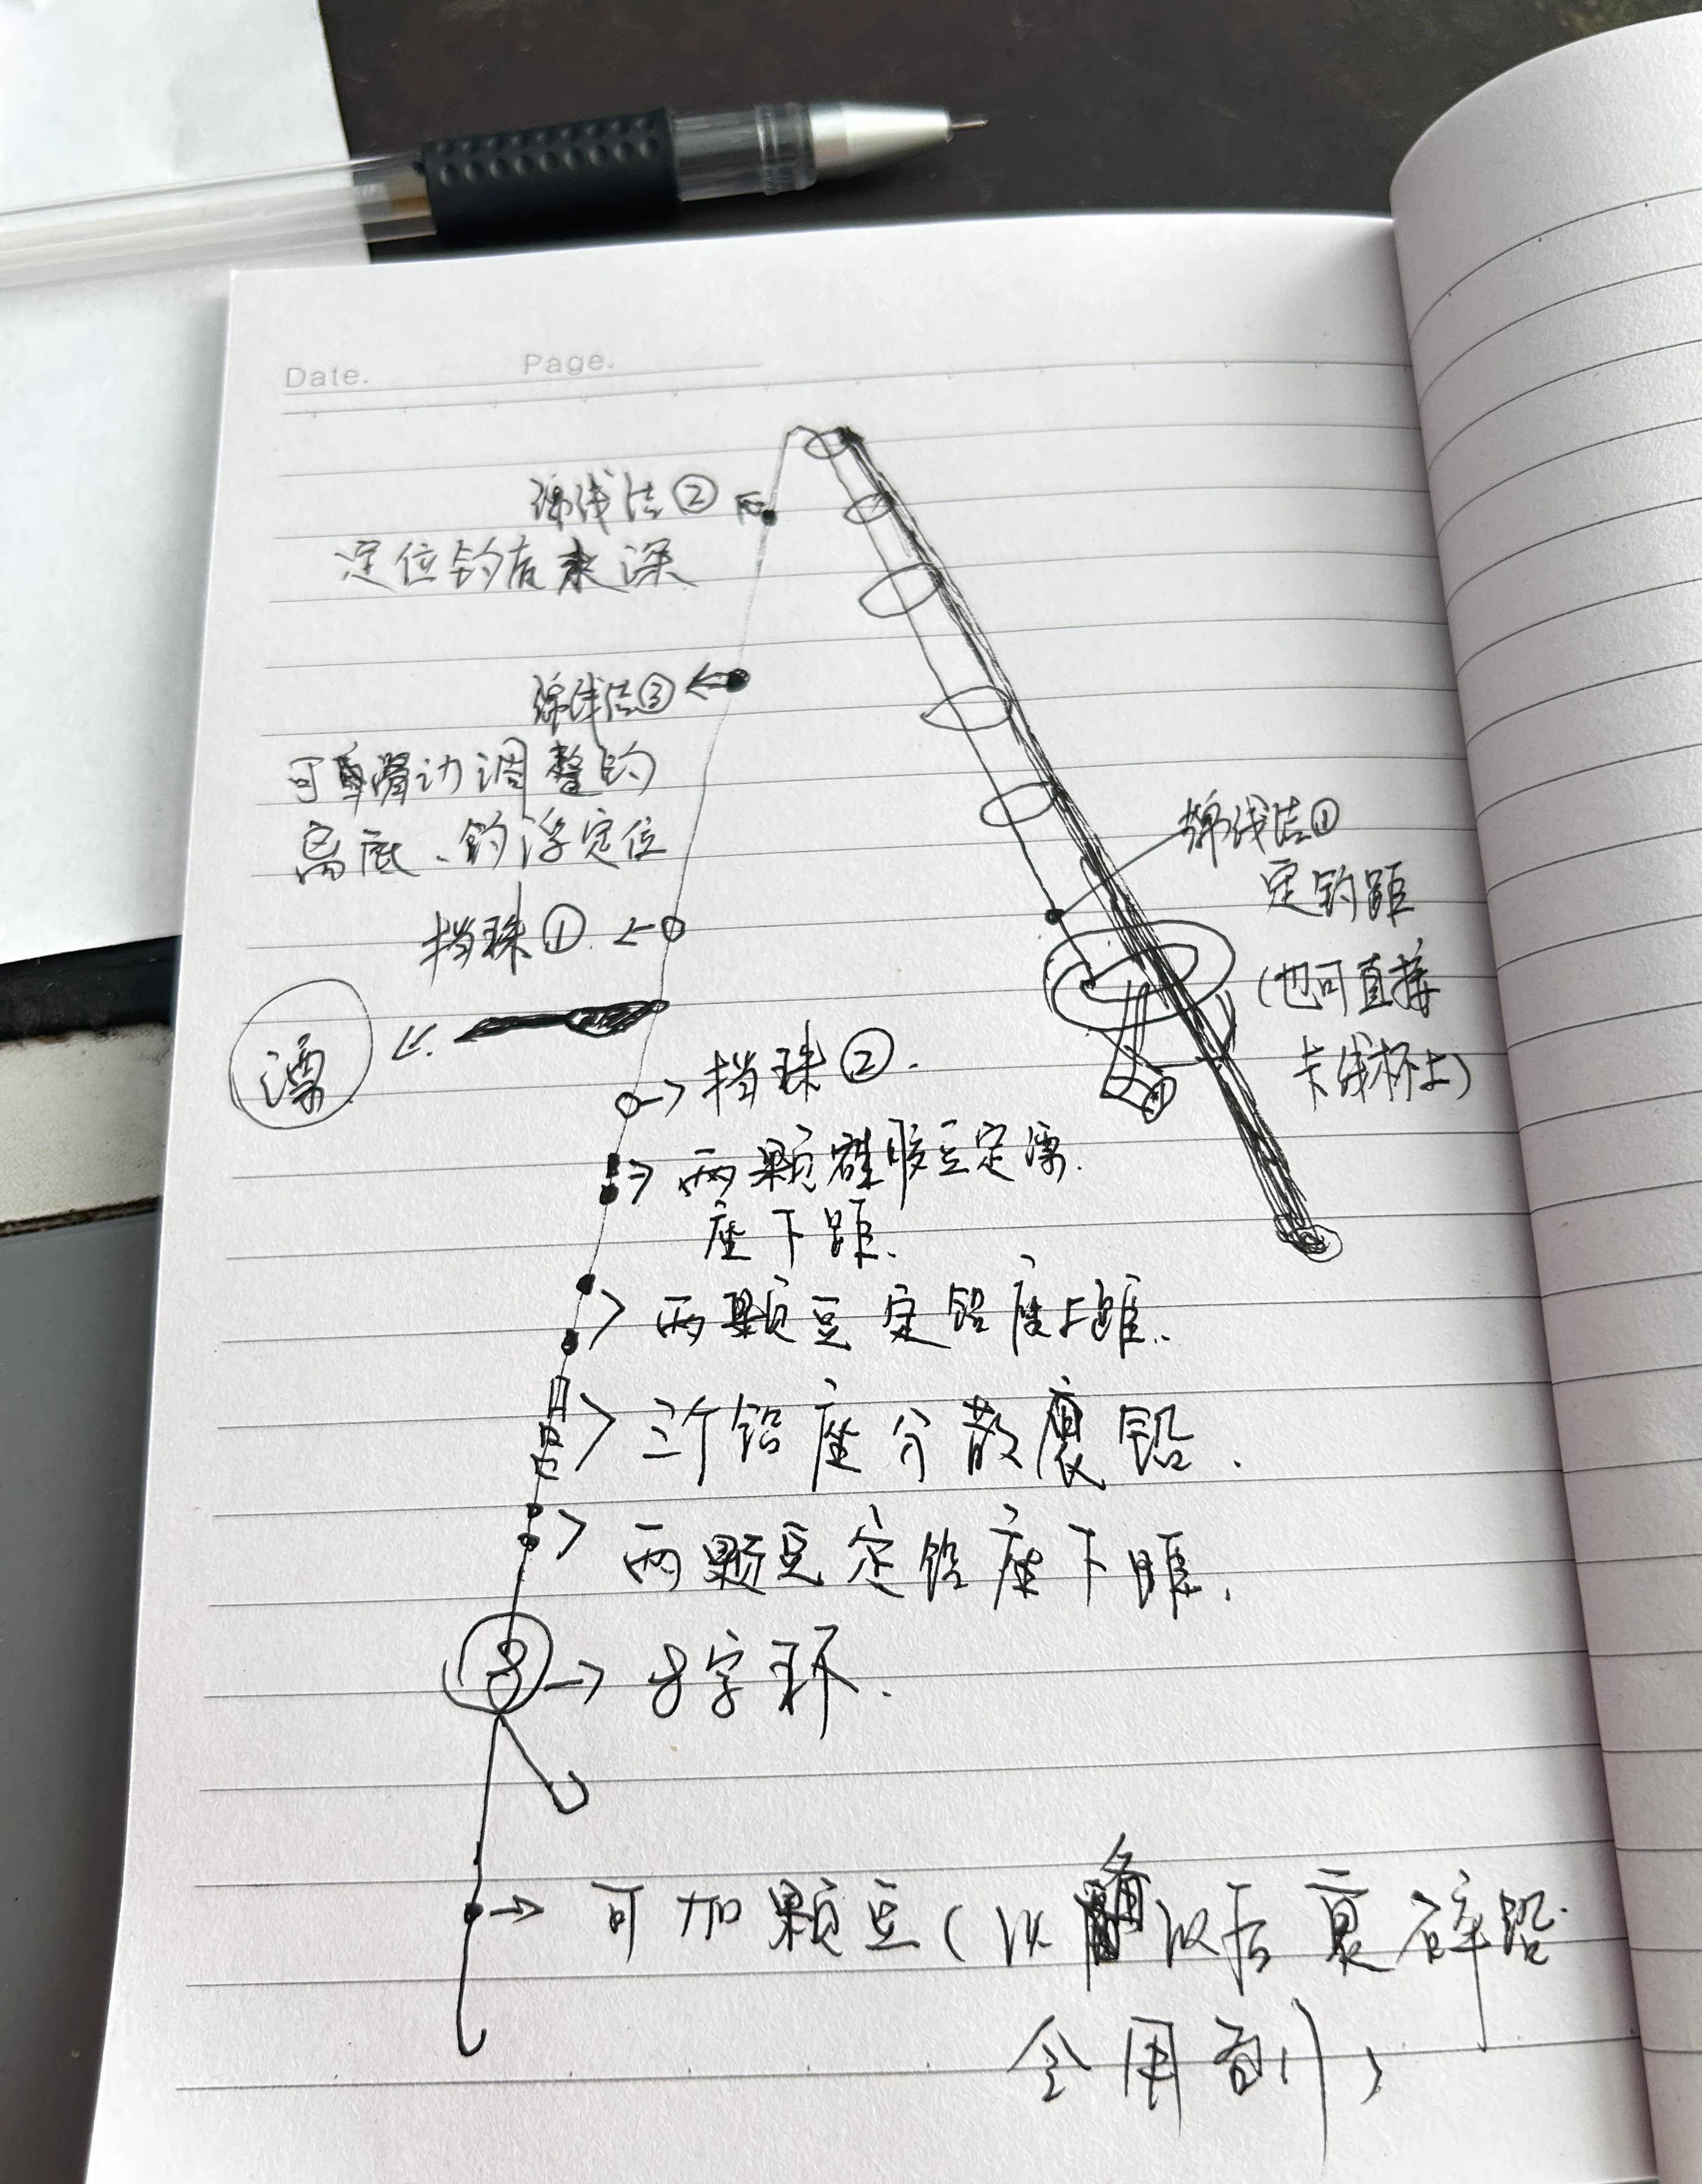 Date. Page.
绵线结②
定位钓有水深
绵线结③
可滑动调整的
高底、钓浮定位
绵线结①
定钓距
(也可直接
卡线杯上)
挡珠①
漂
挡珠②.
两颗硅胶豆定漂.
座下距.
两颗豆定铅座上距.
三个铅座分散裹铅.
两颗豆定铅座下距.
8
8字环.
可加颗豆(以备以后裹碎铅
会用到)